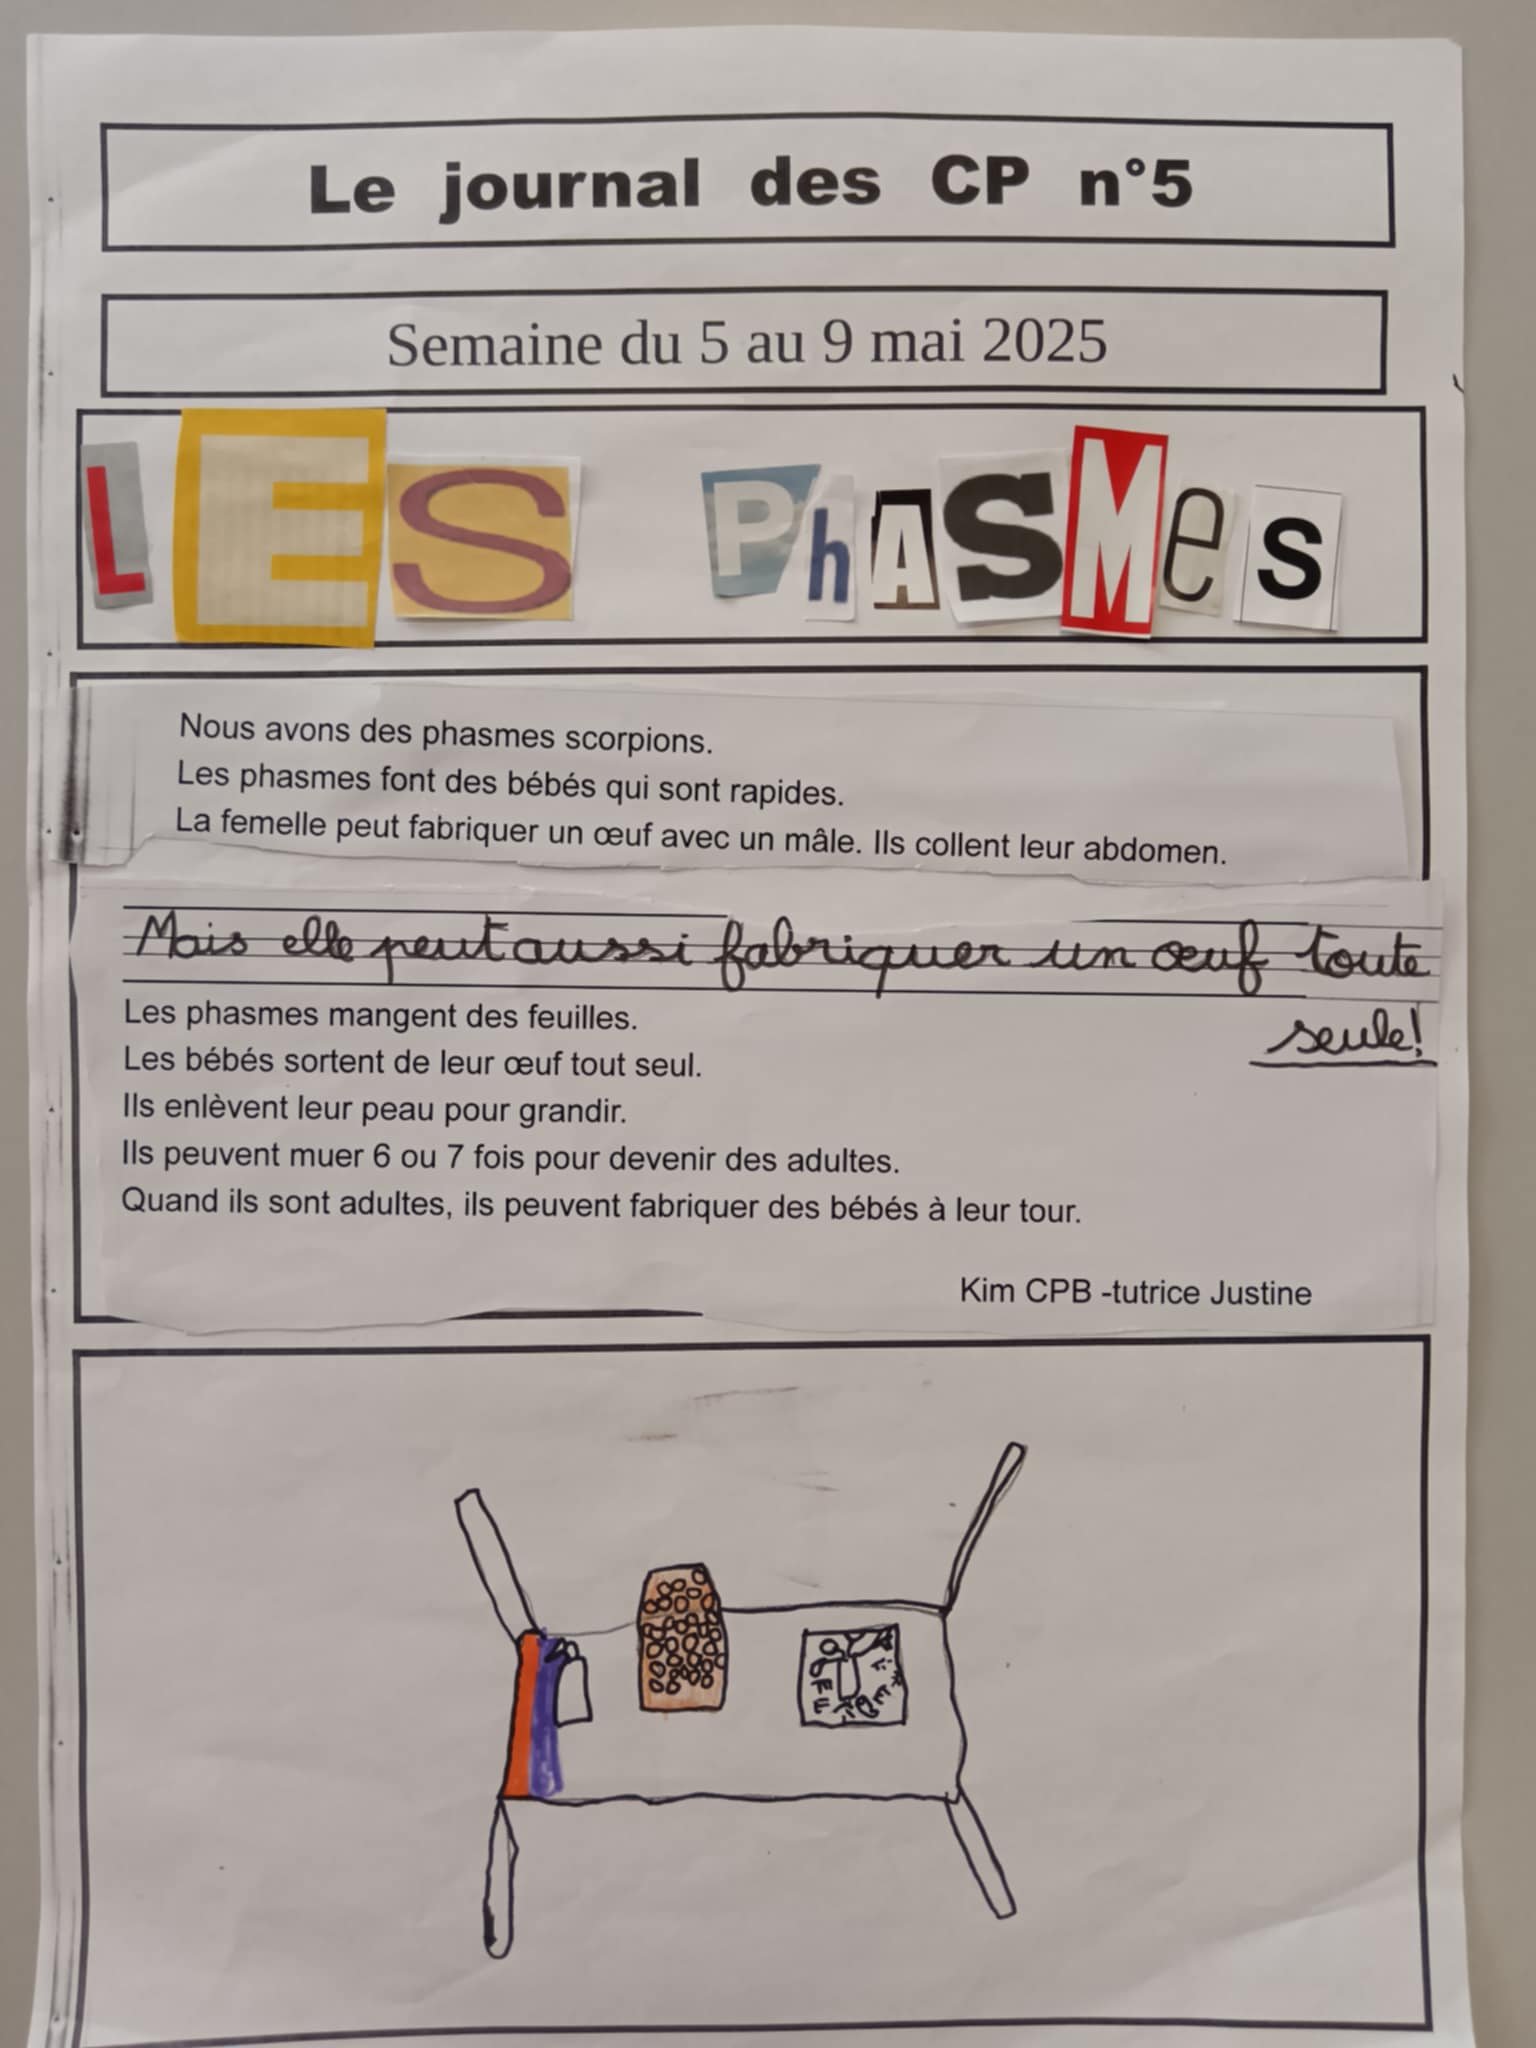 Le journal des CP n°5
Semaine du 5 au 9 mai 2025
LES PhASMes
Nous avons des phasmes scorpions.
Les phasmes font des bébés qui sont rapides.
La femelle peut fabriquer un œuf avec un mâle. Ils collent leur abdomen.
Mais elle peut aussi fabriquer un œuf toute
seule!
Les phasmes mangent des feuilles.
Les bébés sortent de leur œuf tout seul.
Ils enlèvent leur peau pour grandir.
Ils peuvent muer 6 ou 7 fois pour devenir des adultes.
Quand ils sont adultes, ils peuvent fabriquer des bébés à leur tour.
Kim CPB -tutrice Justine